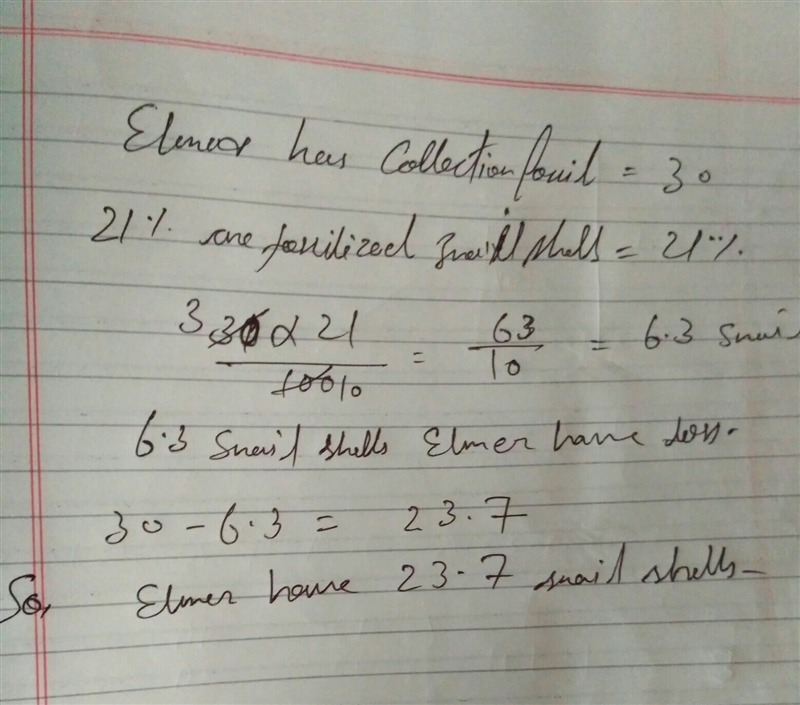 Elmer has Collection fossil = 30
21% are fossilized snail shells = 21%.
3 30 x 21 / 100 10 = 63 / 10 = 6.3 Snai
6.3 Snail shells Elmer have
30 - 6.3 = 23.7
So, Elmer have 23.7 snail shells